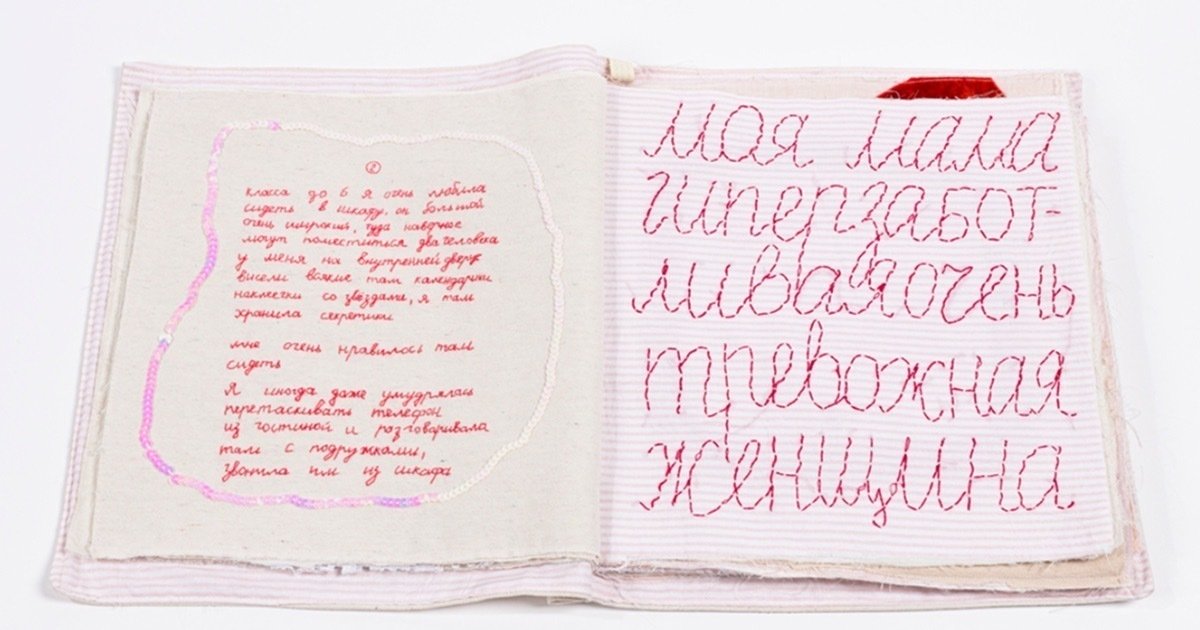 2
класса до 6 я очень любила
сидеть в шкафу. он большой
очень широкий, туда наверное
могут поместиться два человека
у меня на внутренней дверке
висели всякие там календарики
наклейки со звёздами, я там
хранила секретики
мне очень нравилось там
сидеть
Я иногда даже умудрялась
перетаскивать телефон
из гостиной и разговаривала
там с подружками,
звонила им из шкафа
моя мама
гиперзабот-
ливая очень
тревожная
женщина